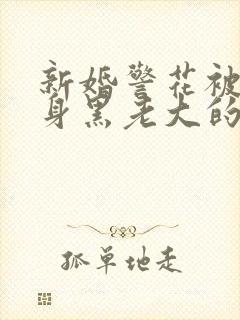 新婚警花被
身黑老大的
孤单地走